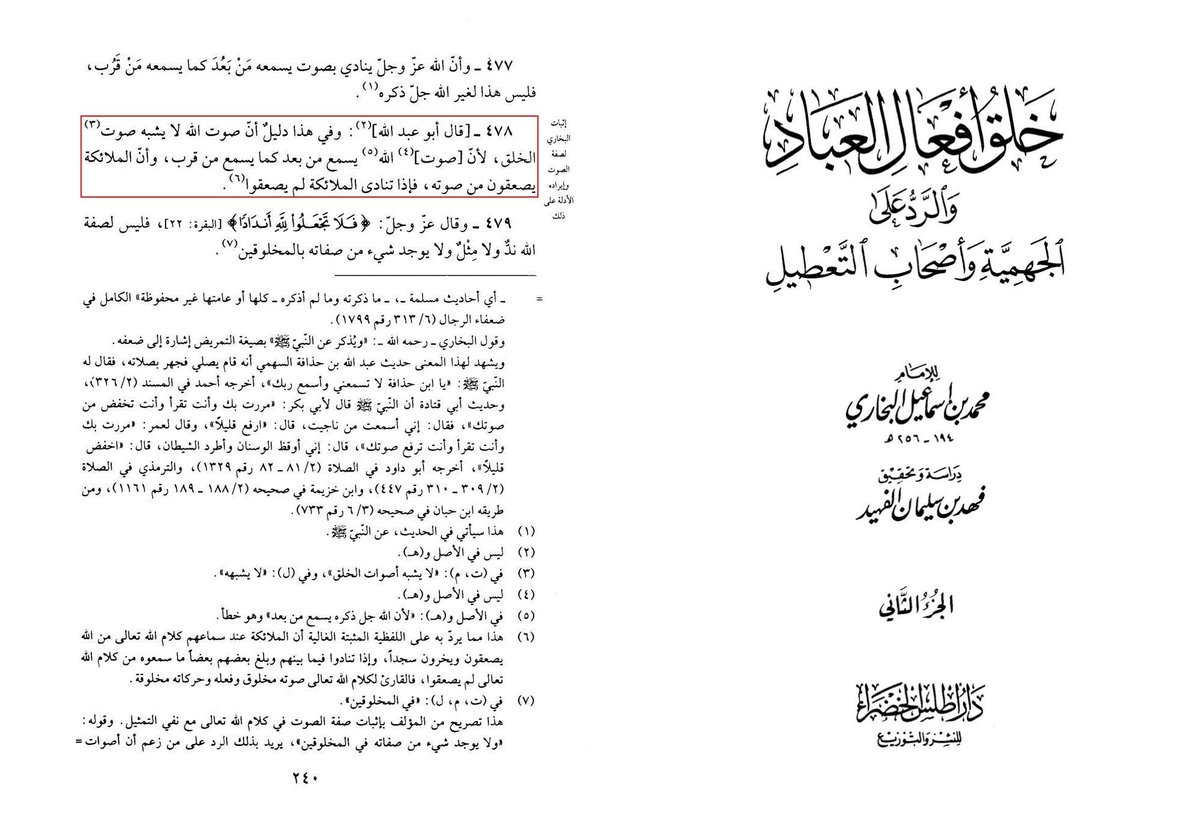 خلق أفعال العباد
والرد على
الجهمية وأصحاب التعطيل
للإمام
محمد بن إسماعيل البخاري
١٩٤ - ٢٥٦ هـ
دراسة وتحقيق
فهد بن سليمان الفهيد
الجزء الثاني
دار أطلس الخضراء
للنشر والتوزيع
٤٧٧ ـ وأنّ الله عزّ وجلّ ينادي بصوت يسمعه مَنْ بَعُدَ كما يسمعه مَنْ قَرُب،
فليس هذا لغير الله جلّ ذكره(١).
٤٧٨ ـ [قال أبو عبد الله](٢): وفي هذا دليلٌ أنّ صوت الله لا يشبه صوت(٣)
الخلق، لأنّ [صوت](٤) الله(٥) يسمع من بعد كما يسمع من قرب، وأنّ الملائكة
يصعقون من صوته، فإذا تنادى الملائكة لم يصعقوا(٦).
إثبات
البخاري
لصفة
الصوت
وإيراده
الأدلة على
ذلك
٤٧٩ ـ وقال عزّ وجلّ: ﴿فَلَا تَجْعَلُوا لِلَّهِ أَندَادًا﴾ [البقرة: ٢٢]، فليس لصفة
الله ندٌّ ولا مِثْلٌ ولا يوجد شيء من صفاته بالمخلوقين(٧).
= ـ أي أحاديث مسلمة ـ، ـ ما ذكرته وما لم أذكره ـ كلها أو عامتها غير محفوظة» الكامل في
ضعفاء الرجال (٦/ ٣١٣ رقم ١٧٩٩).
وقول البخاري ـ رحمه الله ـ: «ويُذكر عن النّبيّ ﷺ» بصيغة التمريض إشارة إلى ضعفه.
ويشهد لهذا المعنى حديث عبد الله بن حذافة السهمي أنه قام يصلي فجهر بصلاته، فقال له
النّبيّ ﷺ: «يا ابن حذافة لا تسمعني وأسمع ربك»، أخرجه أحمد في المسند (٢/ ٣٢٦)،
وحديث أبي قتادة أن النّبيّ ﷺ قال لأبي بكر: «مررت بك وأنت تقرأ وأنت تخفض من
صوتك»، فقال: إني أسمعت من ناجيت، قال: «ارفع قليلاً»، وقال لعمر: «مررت بك
وأنت تقرأ وأنت ترفع صوتك»، قال: إني أوقظ الوسنان وأطرد الشيطان، قال: «اخفض
قليلاً»، أخرجه أبو داود في الصلاة (٢/ ٨١ ـ ٨٢ رقم ١٣٢٩)، والترمذي في الصلاة
(٢/ ٣٠٩ ـ ٣١٠ رقم ٤٤٧)، وابن خزيمة في صحيحه (٢/ ١٨٨ ـ ١٨٩ رقم ١١٦١)، ومن
طريقه ابن حبان في صحيحه (٣/ ٦ رقم ٧٣٣).
(١) هذا سيأتي في الحديث، عن النّبيّ ﷺ.
(٢) ليس في الأصل و(هـ).
(٣) في (ت، م): «لا يشبه أصوات الخلق»، وفي (ل): «لا يشبهه».
(٤) ليس في الأصل و(هـ).
(٥) في الأصل و(هـ): «لأن الله جل ذكره يسمع من بعد» وهو خطأ.
(٦) هذا مما يردّ به على اللفظية المثبتة الغالية أن الملائكة عند سماعهم كلام الله تعالى من الله
يصعقون ويخرون سجداً، وإذا تنادوا فيما بينهم وبلغ بعضهم بعضاً ما سمعوه من كلام الله
تعالى لم يصعقوا، فالقارئ لكلام الله تعالى صوته مخلوق وفعله وحركاته مخلوقة.
(٧) في (ت، م، ل): «في المخلوقين».
هذا تصريح من المؤلف بإثبات صفة الصوت في كلام الله تعالى مع نفي التمثيل. وقوله:
«ولا يوجد شيء من صفاته في المخلوقين»، يريد بذلك الرد على من زعم أن أصوات=
٢٤٠